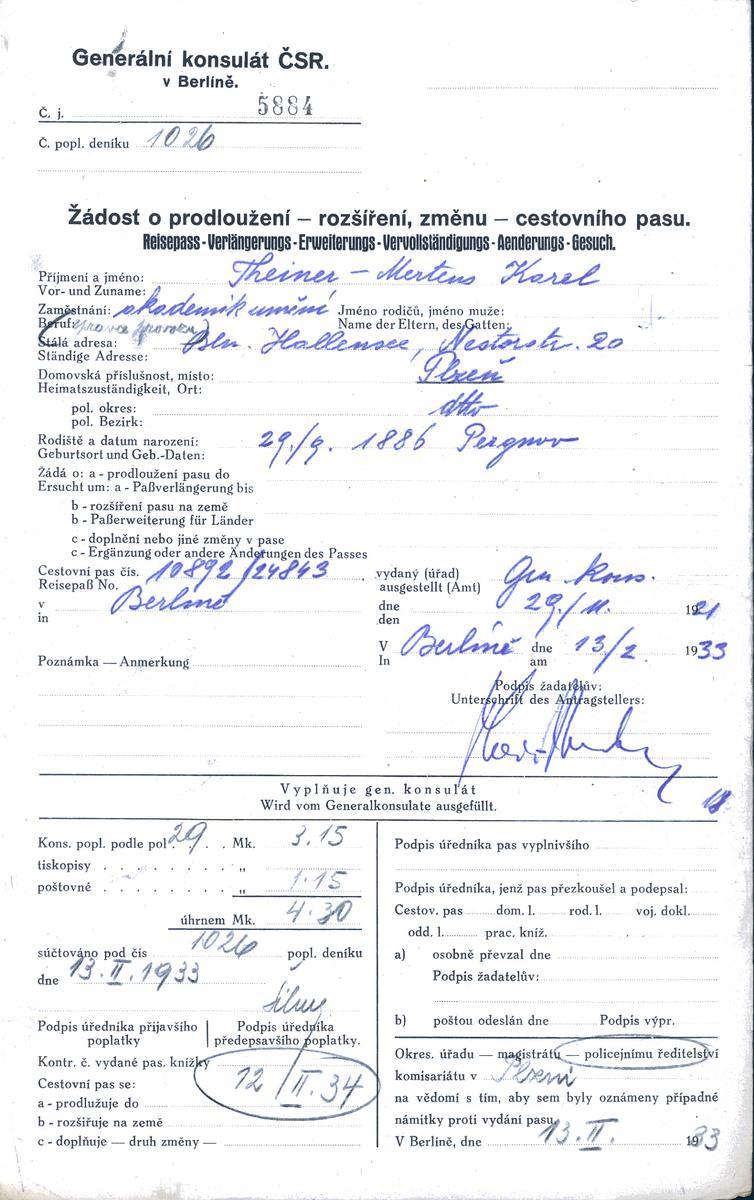 Generální konsulát ČSR.
v Berlíně.
Č. j. 5884
Č. popl. deníku 1026
Žádost o prodloužení — rozšíření, změnu — cestovního pasu.
Reisepass - Verlängerungs - Erweiterungs - Vervollständigungs - Aenderungs - Gesuch.
Příjmení a jméno: Theiner - Mertens Karel
Vor- und Zuname:
Zaměstnání: akademik umění Jméno rodičů, jméno muže:
Beruf: Name der Eltern, des Gatten:
Stálá adresa: Bln. Hallensee, Nestorstr. 20
Ständige Adresse:
Domovská příslušnost, místo: Plzeň
Heimatszuständigkeit, Ort:
pol. okres: dtto
pol. Bezirk:
Rodiště a datum narození: 29./9. 1886 Pergnov
Geburtsort und Geb.-Daten:
Žádá o: a - prodloužení pasu do
Ersucht um: a - Paßverlängerung bis
b - rozšíření pasu na země
b - Paßerweiterung für Länder
c - doplnění nebo jiné změny v pase
c - Ergänzung oder andere Änderungen des Passes
Cestovní pas čís. 10892/24843, vydaný (úřad) Gen. Kons.
Reisepaß No. ausgestellt (Amt)
v Berlíně dne 29./11. 1921
in den
V Berlíně dne 13/2 1933
In am
Poznámka — Anmerkung
Podpis žadatelův:
Unterschrift des Antragstellers:
Vyplňuje gen. konsulát
Wird vom Generalkonsulate ausgefüllt.
Kons. popl. podle pol. 29 . . Mk. 3.15
tiskopisy . . . . . . . . „
poštovné . . . . . . . . „ 1.15
úhrnem Mk. 4.30
súčtováno pod čís 1026 popl. deníku
dne 13. II. 1933
Podpis úředníka přijavšího poplatky
Podpis úředníka předepsavšího poplatky.
Kontr. č. vydané pas. knížky
Cestovní pas se: 12/II. 34
a - prodlužuje do
b - rozšiřuje na země
c - doplňuje — druh změny —
Podpis úředníka pas vyplnivšího
Podpis úředníka, jenž pas přezkoušel a podepsal:
Cestov. pas dom. l. rod. l. voj. dokl.
odd. l. prac. kníž.
a) osobně převzal dne
Podpis žadatelův:
b) poštou odeslán dne Podpis výpr.
Okres. úřadu — magistrátu — policejnímu ředitelství
komisariátu v Plzeni
na vědomí s tím, aby sem byly oznámeny případné
námitky proti vydání pasu.
V Berlíně, dne 13. II. 1933